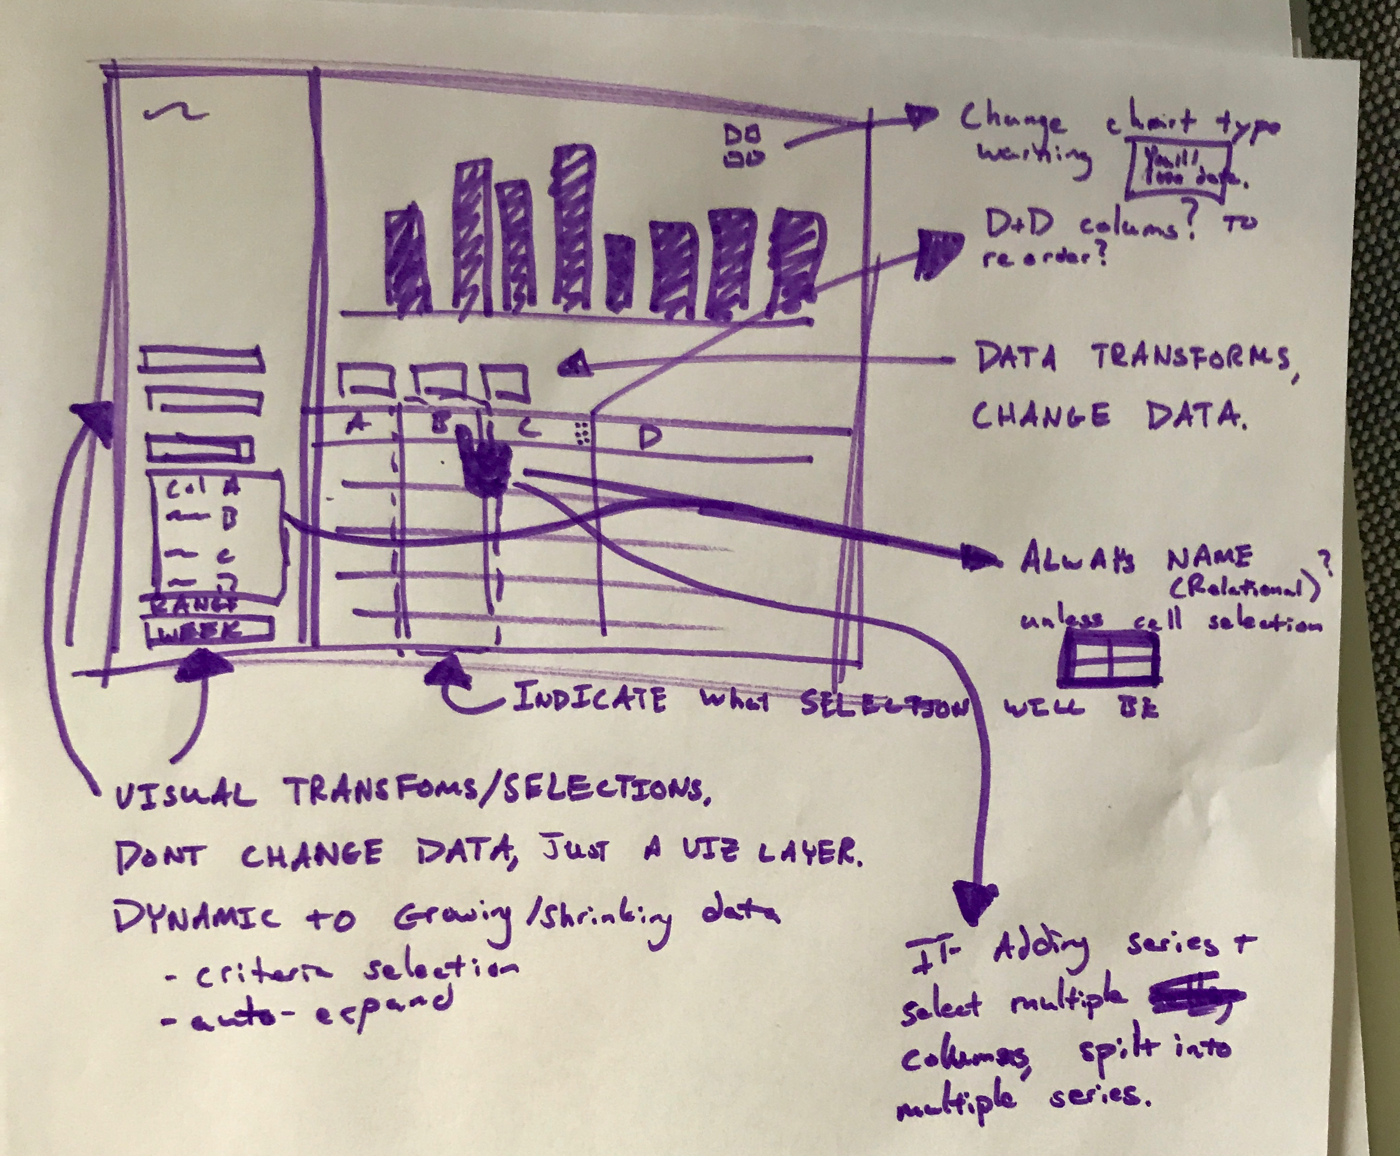 Change chart type
warning
You'll
lose data.
D+D colums? TO
reorder?
DATA TRANSFORMS,
CHANGE DATA.
A B C D
Col A
B
C
D
RANGE
WEEK
ALWAYS NAME
(Relational)?
unless cell selection
INDICATE what SELECTION WILL BE
VISUAL TRANSFOMS/SELECTIONS,
DONT CHANGE DATA, Just A VIZ LAYER.
DYNAMIC to Growing/Shrinking data
- criteria selection
- auto-expand
If Adding series +
select multiple
columns, spilt into
multiple series.